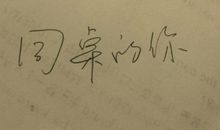 同桌的你